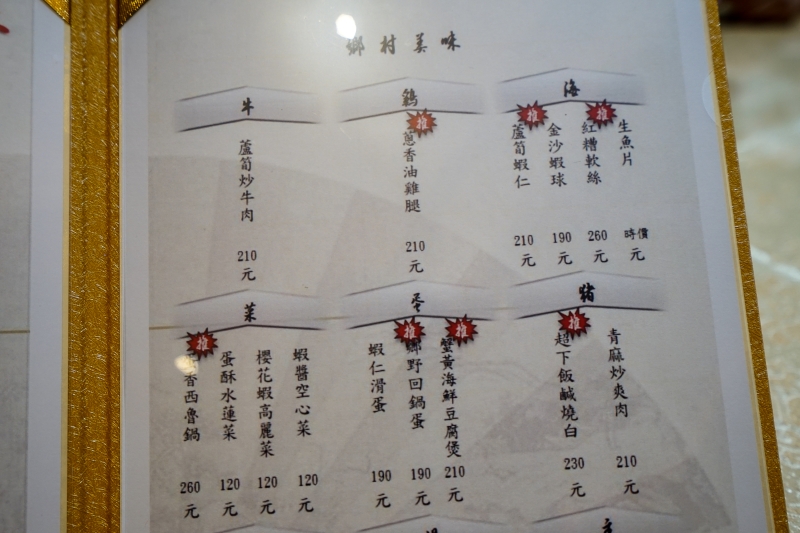 鄉村美味
牛
蘆筍炒牛肉
210元
鷄
推
蔥香油雞腿
210元
海
生魚片
時價元
推
紅糟軟絲
260元
金沙蝦球
190元
推
蘆筍蝦仁
210元
菜
蝦醬空心菜
120元
櫻花蝦高麗菜
120元
蛋酥水蓮菜
120元
推
香西魯鍋
260元
蛋
推
蟹黃海鮮豆腐煲
210元
推
鄉野回鍋蛋
190元
蝦仁滑蛋
190元
豬
青麻炒爽肉
210元
推
超下飯鹹燒白
230元